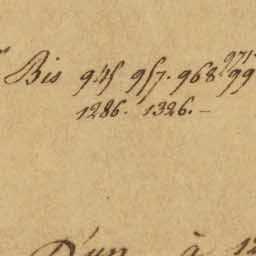 Bis 945 957. 968 971. 99
1286. 1326. –
D'un à 12